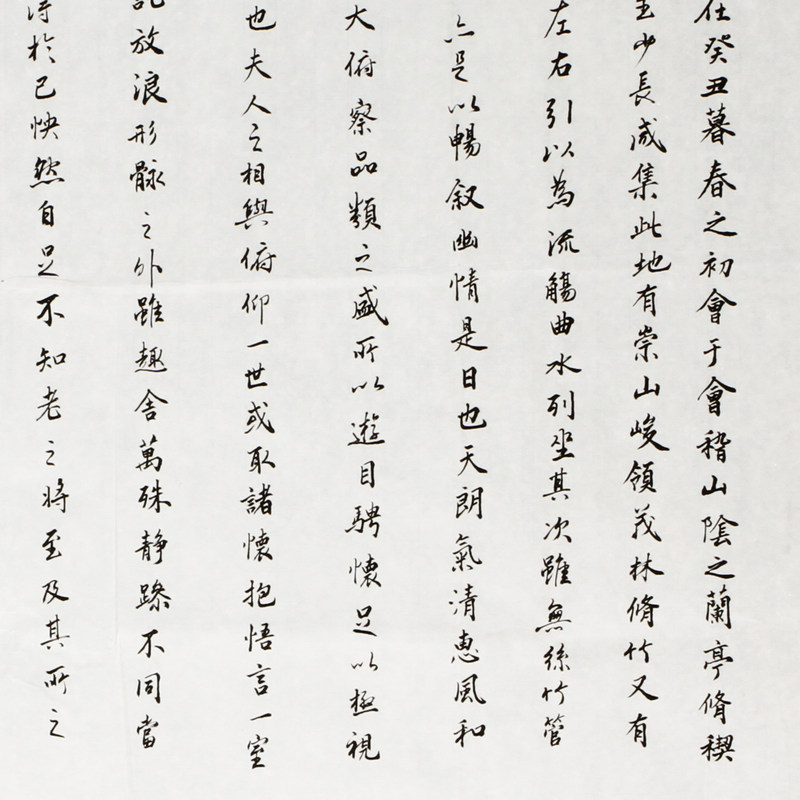 在癸丑暮春之初會于會稽山陰之蘭亭脩稧
至少長咸集此地有崇山峻領茂林脩竹又有
左右引以為流觴曲水列坐其次雖無絲竹管
亦足以暢叙幽情是日也天朗氣清惠風和
大俯察品類之盛所以遊目騁懷足以極視
也夫人之相與俯仰一世或取諸懷抱悟言一室
放浪形骸之外雖趣舍萬殊静躁不同當
得於己快然自足不知老之將至及其所之